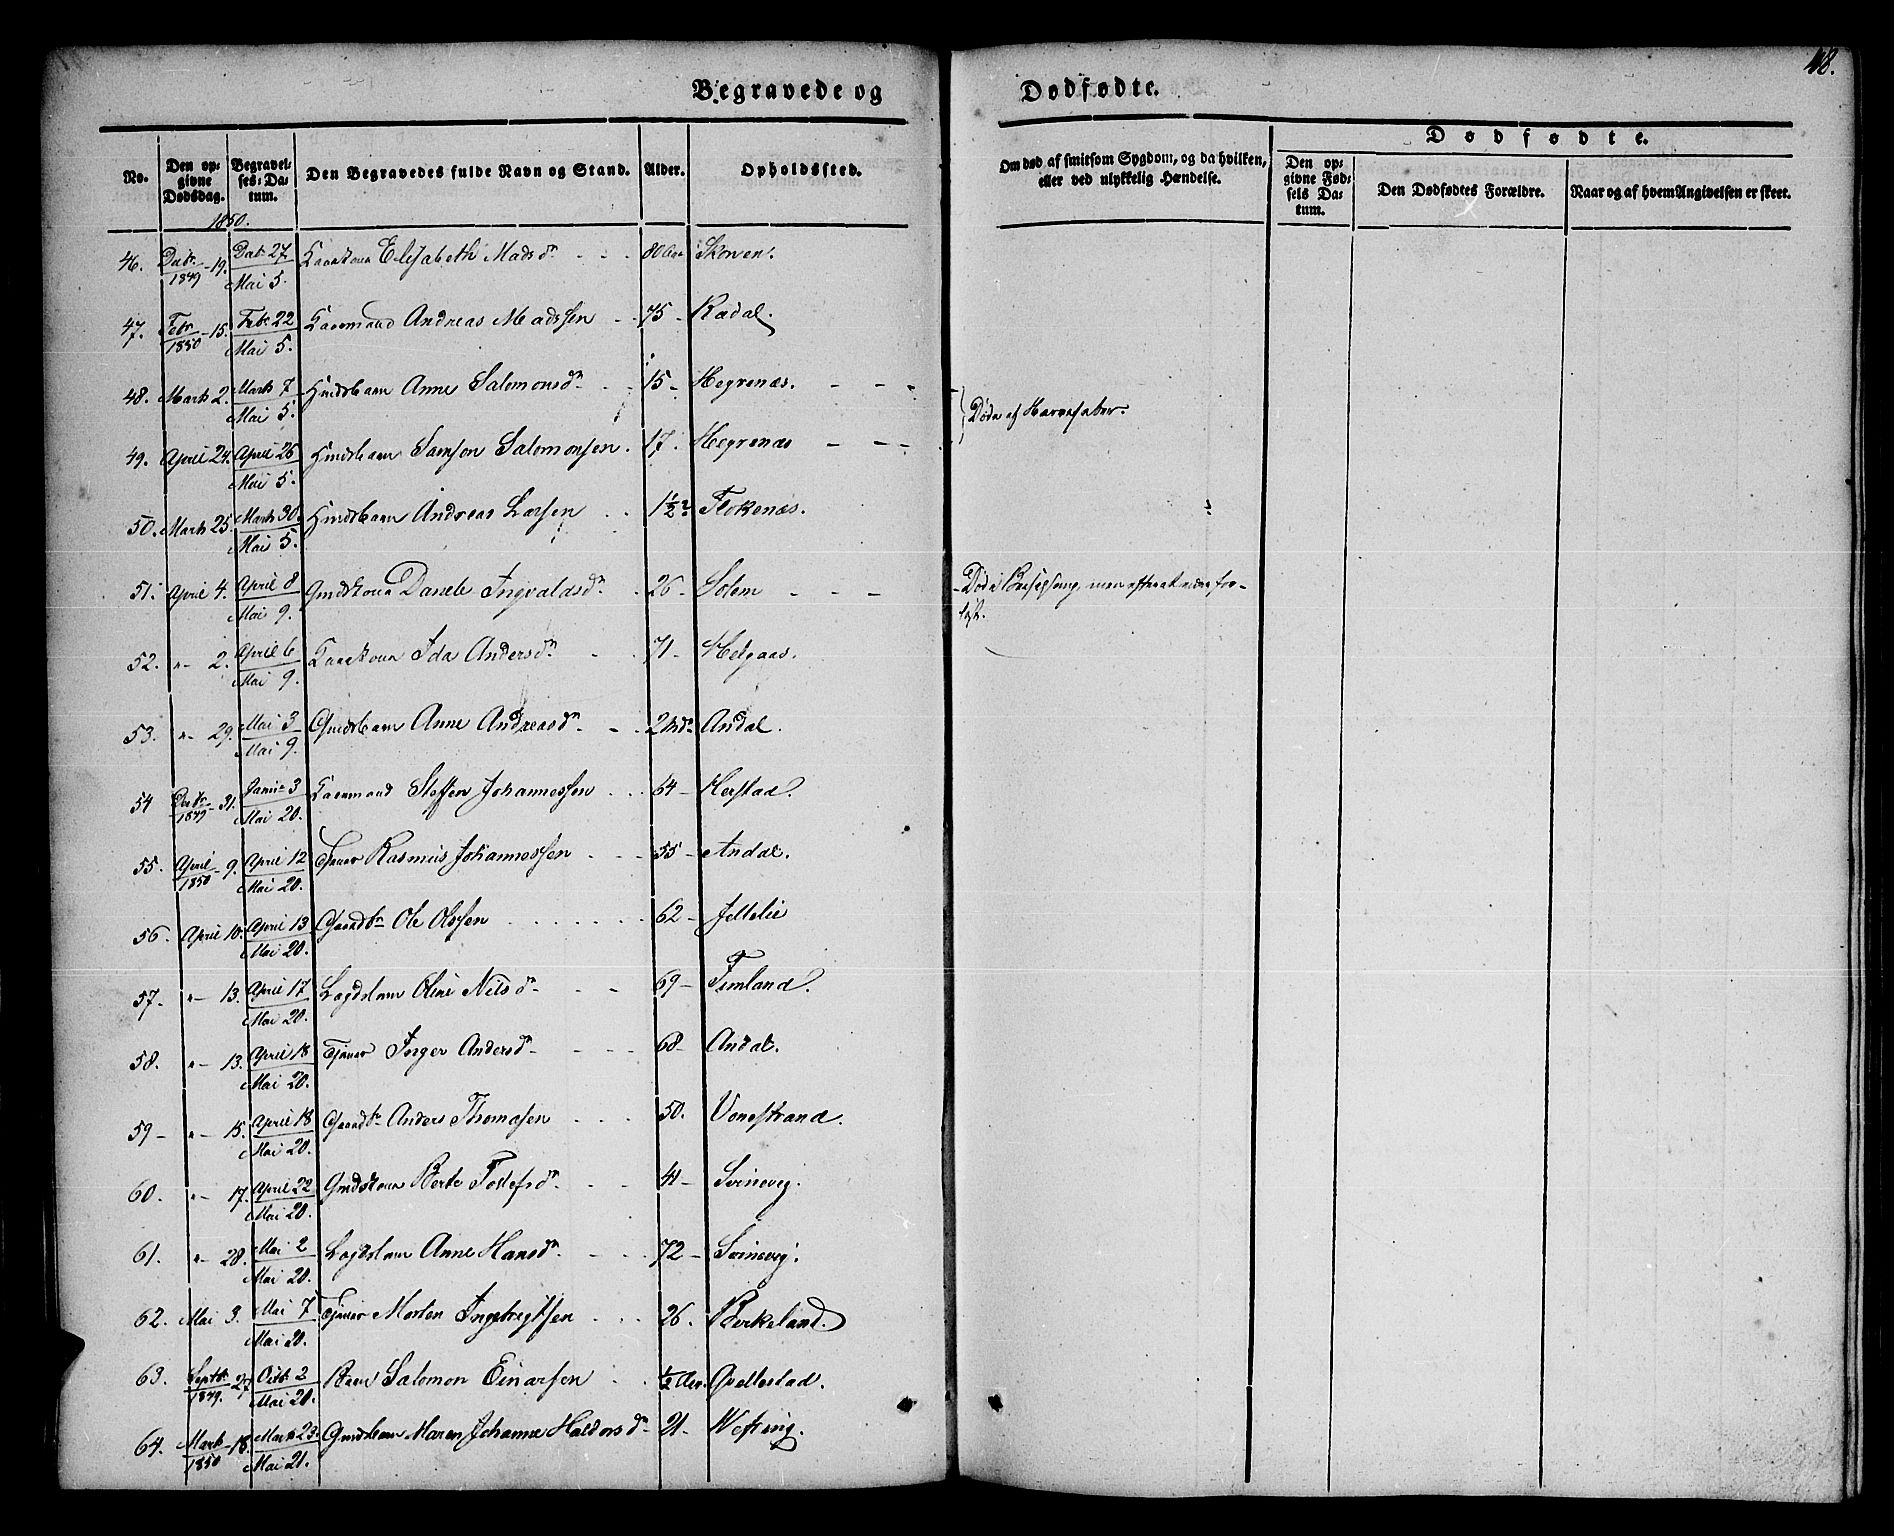 118.
Begravede og Dødfødte.
No. Den opgivne Dødsdag. Begravelses-Datum. Den Begravedes fulde Navn og Stand. Alder. Opholdssted. Om død af smitsom Sygdom, og da hvilken, eller ved ulykkelig Hændelse. Dødfødte. Den opgivne Fødsels Datum. Den Dødfødtes Forældre. Naar og af hvem Angivelsen er skeet.
1850.
46. Decbr 1849 - 19. Decbr 27 Mai 5. Kaarkona Elisabeth Madsdr 80 Aar Skorven.
47. Febr 1850 - 15. Febr 22 Mai 5. Kaarmand Andreas Madssen 75 - Rødal.
48. Marts 2. Marts 7 Mai 5. Anne Salomonsdr 15 - Hegrenæs.
Døde af Nervefeber.
49. April 24. April 26 Mai 5. Samson Salomonsen. 17. Hegrenæs
50. Marts 25. Marts 30. Mai 5. Andreas Larsen 1½ Flokenæs.
51. April 4. April 8 Mai 9. Gmdskona Danele Ingvaldsdr 26 - Solem
Død i Barselseng, men efterat være forløst.
52. " - 2. April 6 Mai 9. Kaarkona Ida Andersdr 71 - Helgaas.
53. " - 29. Mai 3 Mai 9. Gmdsbarn Anne Andreasdr 2 Andal.
54 Decbr 1849 - 31. Januar 3 Mai 20. Kaarmand Steffen Johannessen 64 - Herstad.
55. April 1850 - 9. April 12 Mai 20. Tjener Rasmus Johannessen 55 - Andal.
56. April 10. April 13 Mai 20. Gaardbr Ole Olssen 62 - Jeltelie
57. " - 13. April 17 Mai 20. Lægdslem Oline Nilsdr 69 - Timland.
58. " - 13. April 18 Mai 20. Tjener Inger Andersdr 68 - Andal.
59 - " - 15. April 18 Mai 20. Gaardbr Anders Thomasen 50. Vonestrand.
60. " - 17. April 22 Mai 20. Gmdskona Berte Tollefsdr 41 - Svinevig.
61. " - 28. Mai 2 Mai 20. Lægdslem Anne Hansdr 72 - Svinevig.
62. Mai 3. Mai 7 Mai 20. Tjener Morten Ingebrigtsen 26. Birkeland.
63. Septbr 1849. 27. Octbr 2 Mai 20. Barn Salomon Einarsen ½ Aar. Qvellestad.
64. Marts 1850 - 18. Marts 23 Mai 21. Gmdsbarn Maren Johanne Haldorsdr 21 - Westring.